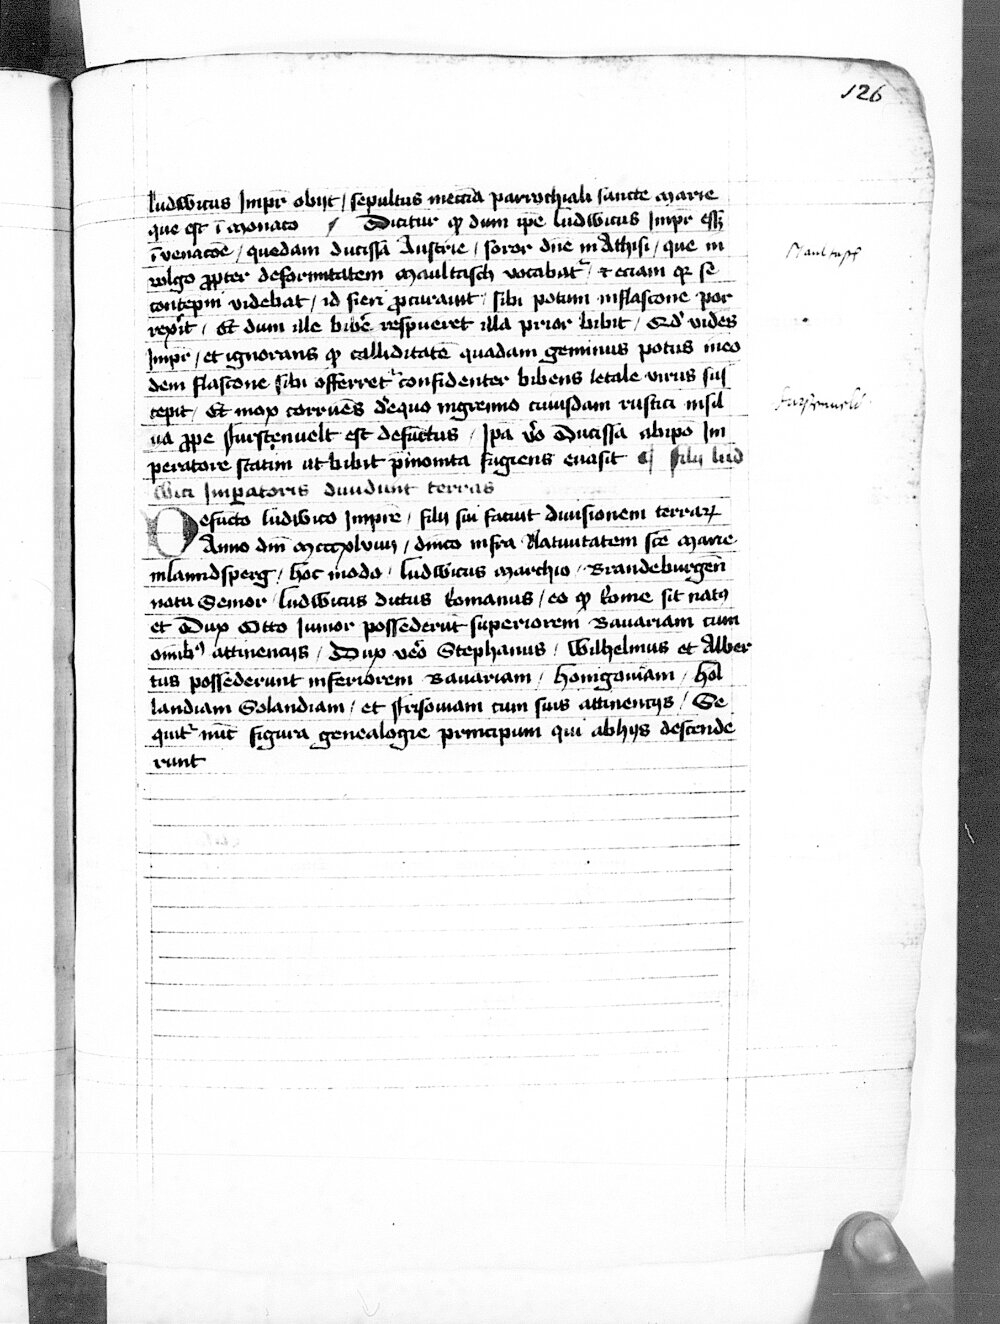 126
ludwicus Imper obijt / sepultus in eccia parrochiali sancte Marie
que est i Monaco / Dicitur qp dum ipe ludwicus Impr essz
i venacoe / quedam ducissa Austrie / soror dne in Athisi / que in
vulgo ppter deformitatem Maultasch vocabat / et eciam qz se
contepni videbat / id fieri pcuravit / sibi potum in flascone por
rexit / Et dum ille bibe respueret illa prior bibit / Qd vides
Impr / et ignorans qp calliditate quadam geminus potus in eo
dem flascone sibi offerret confidenter bibens letale virus sus
cepit / Et mox corruens de equo in gremio cuiusdam rustici in sil
ua ppe furstenuelt est defunctus / Ipa vo Ducissa ab ipo Im
peratore statim ut bibit pinomta fugiens euasit filij lud
wici Imperatoris diuidunt terras
Defucto ludwico Impre / filij sui faciut diuisionem terrarz
Anno dni Mcccxlviiij / dnico infra Natiuitatem sce Marie
in lanndsperg / hoc modo / ludwicus Marchio / Brandeburgen
natu Senior / ludwicus dictus Romanus / eo qp Rome sit natus
et Dux Otto Iunior possederut superiorem Bauariam cum
omibus attinencijs / Dux vero Stephanus / Wilhelmus et Alber
tus possederunt inferiorem Bauariam / Honigoniam / Hol
landiam Solandiam / et frisoniam cum suis attinencijs / Se
quit nuc figura genealogie principum qui ab hijs descende
runt
Maultasch
furstenueld